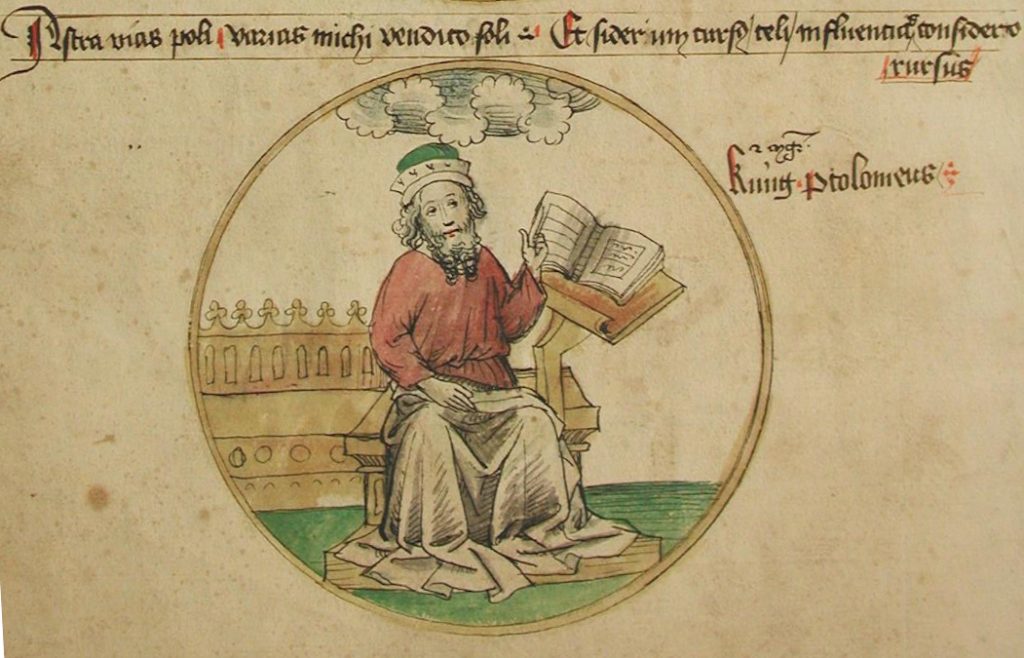 Astra vias poli varias michi vendico soli Et siderum cursus celi influentias considero
rursus
Kunig ptolomeus